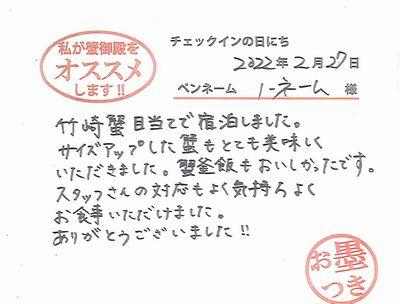 私が蟹御殿を
オススメ
します!!
チェックインの日にち
2022年2月27日
ペンネーム ノーネーム 様
竹崎蟹目当てで宿泊しました。
サイズアップした蟹もとても美味しく
いただきました。蟹釜飯もおいしかったです。
スタッフさんの対応もよく気持ちよく
お食事いただけました。
ありがとうございました!!
お墨
つき